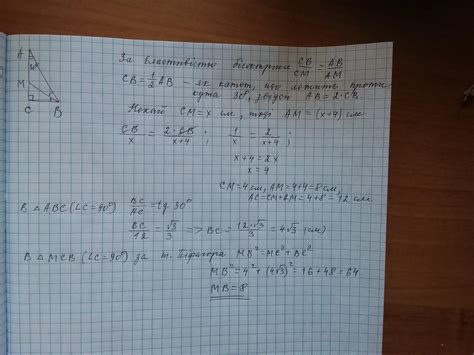 За властивістю бісектриси CB/CM = AB/AM
CB = 1/2 AB – як катет, що лежить проти
кута 30°, звідси AB = 2·CB.
Нехай CM = x см, тоді AM = (x+4) см
CB/x = 2·CB/(x+4); 1/x = 2/(x+4);
x+4 = 2x
x = 4
CM = 4 см, AM = 4+4 = 8 см,
AC = CM + AM = 4+8 = 12 см
В △ ABC (∠C = 90°) BC/AC = tg 30°
BC/12 = √3/3 => BC = 12·√3/3 = 4√3 (см)
В △ MCB (∠C = 90°) за т. Піфагора MB² = MC² + BC²
MB² = 4² + (4√3)² = 16 + 48 = 64
MB = 8
A
30°
M
C B